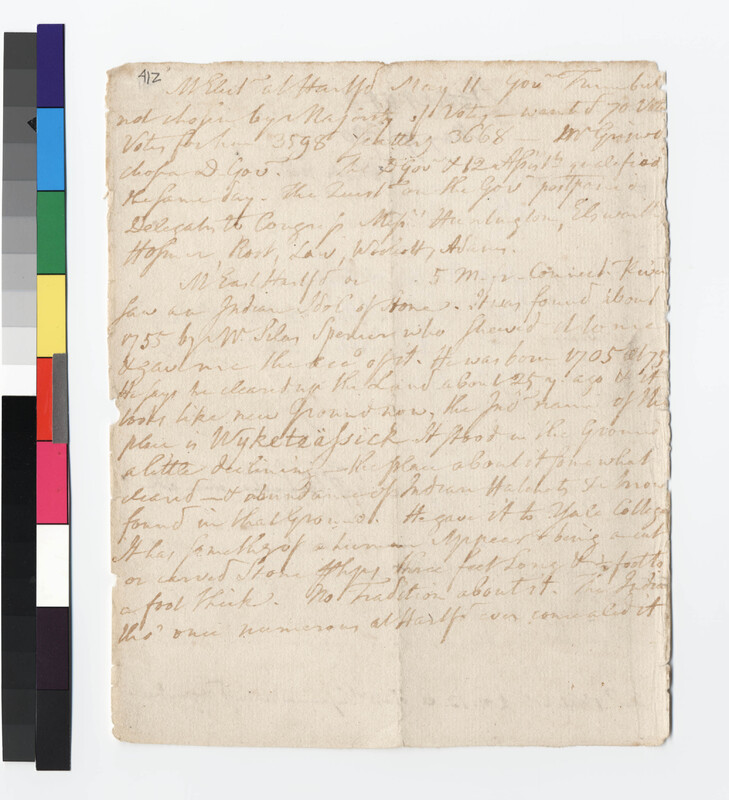 412
At Elect<sup>n</sup> at Hartf<sup>d</sup> May 11. Gov<sup>r</sup> Trumbull
not chosen by a Majority of Votes – wanted 70 Votes
Votes for him 3598 3668 – Mr Griswold
chosen D Gov<sup>r</sup>. The D Gov<sup>r</sup> & 12 Assist<sup>ts</sup> qualified
the same day. The Quest<sup>n</sup> on the Gov<sup>r</sup> postponed
Delegates to Congress Mess<sup>rs</sup> Huntington, Elsworth
Hosmer, Root, Law, Wolcott, Adams.
At East Hartf<sup>d</sup> on 5 M. Connect. River
saw an Indian Idol of stone. It was found about
1755 by Mr. Silas Spencer who shewed it to me
& gave me the acc<sup>o</sup> of it. He was born 1705 æt 75
He says he cleared up the Land about 25 y. ago & it
looks like new Ground now, the Ind<sup>n</sup> name of the
place is Wyketäässick It stood in the Ground
a little declining – the place about it somewhat
cleared – & abundance of Indian Hatchets &c
found in that Ground. He gave it to Yale College
It has something of a human Appear<sup>a</sup> being a cut
or carved Stone three feet Long & ½ foot to
a foot thick. No Tradition about it. The Indians
tho' once numerous at Hartf<sup>d</sup> ever concealed it